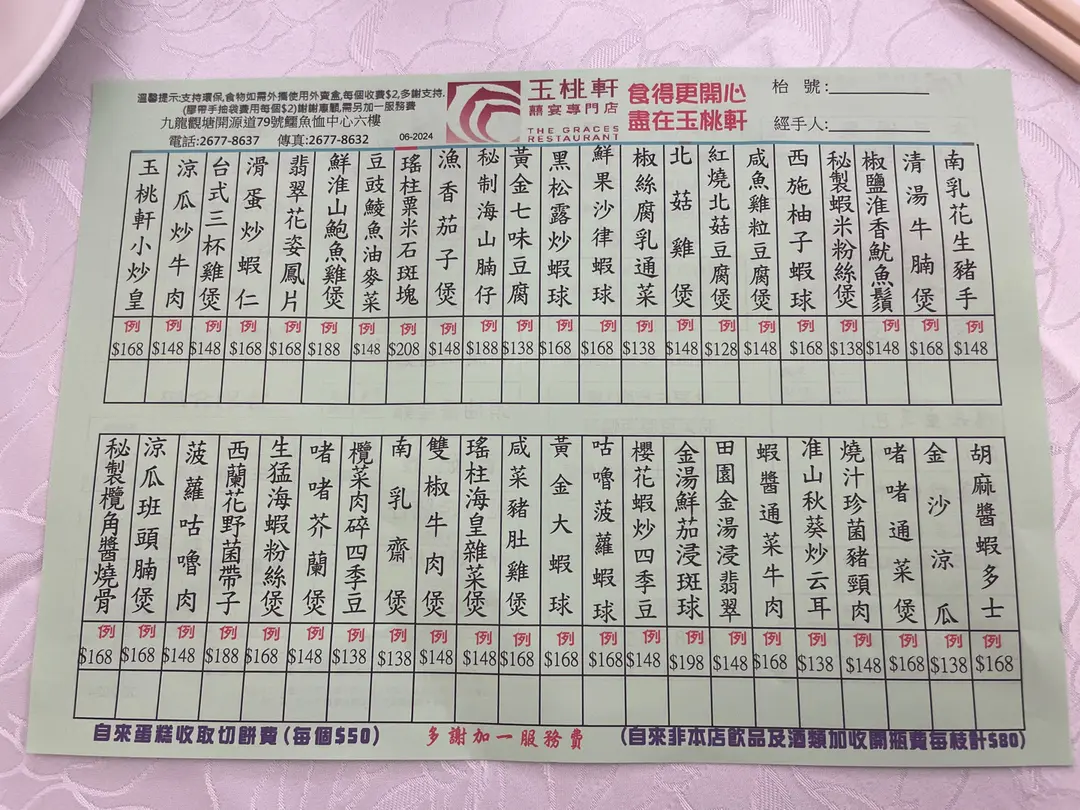 溫馨提示:支持環保,食物如需外攜使用外賣盒,每個收費$2,多謝支持.
(膠帶手抽袋費用每個$2)謝謝惠顧,需另加一服務費
九龍觀塘開源道79號鱷魚恤中心六樓
電話:2677-8637 傳真:2677-8632
06-2024
玉桃軒
囍宴專門店
THE GRACES
RESTAURANT
食得更開心
盡在玉桃軒
枱號:
經手人:
南乳花生豬手 例 $148
清湯牛腩煲 例 $168
椒鹽淮香魷魚鬚 例 $148
秘製蝦米粉絲煲 例 $138
西施柚子蝦球 例 $168
咸魚雞粒豆腐煲 例 $148
紅燒北菇豆腐煲 例 $128
北菇雞煲 例 $148
椒絲腐乳通菜 例 $138
鮮果沙律蝦球 例 $168
黑松露炒蝦球 例 $168
黃金七味豆腐 例 $138
秘制海山腩仔 例 $188
漁香茄子煲 例 $148
瑤柱粟米石斑塊 例 $208
豆豉鯪魚油麥菜 例 $148
鮮淮山鮑魚雞煲 例 $188
翡翠花姿鳳片 例 $168
滑蛋炒蝦仁 例 $168
台式三杯雞煲 例 $148
涼瓜炒牛肉 例 $148
玉桃軒小炒皇 例 $168
胡麻醬蝦多士 例 $168
金沙涼瓜 例 $138
啫啫通菜煲 例 $168
燒汁珍菌豬頸肉 例 $148
淮山秋葵炒云耳 例 $138
蝦醬通菜牛肉 例 $168
田園金湯浸翡翠 例 $148
金湯鮮茄浸斑球 例 $198
櫻花蝦炒四季豆 例 $148
咕嚕菠蘿蝦球 例 $168
黃金大蝦球 例 $168
咸菜豬肚雞煲 例 $168
瑤柱海皇雜菜煲 例 $148
雙椒牛肉煲 例 $148
南乳齋煲 例 $138
欖菜肉碎四季豆 例 $138
啫啫芥蘭煲 例 $148
生猛海蝦粉絲煲 例 $168
西蘭花野菌帶子 例 $188
菠蘿咕嚕肉 例 $148
涼瓜班頭腩煲 例 $168
秘製欖角醬燒骨 例 $168
自來蛋糕收取切餅費(每個$50)
多謝加一服務費
(自來非本店飲品及酒類加收開瓶費每枝計$80)